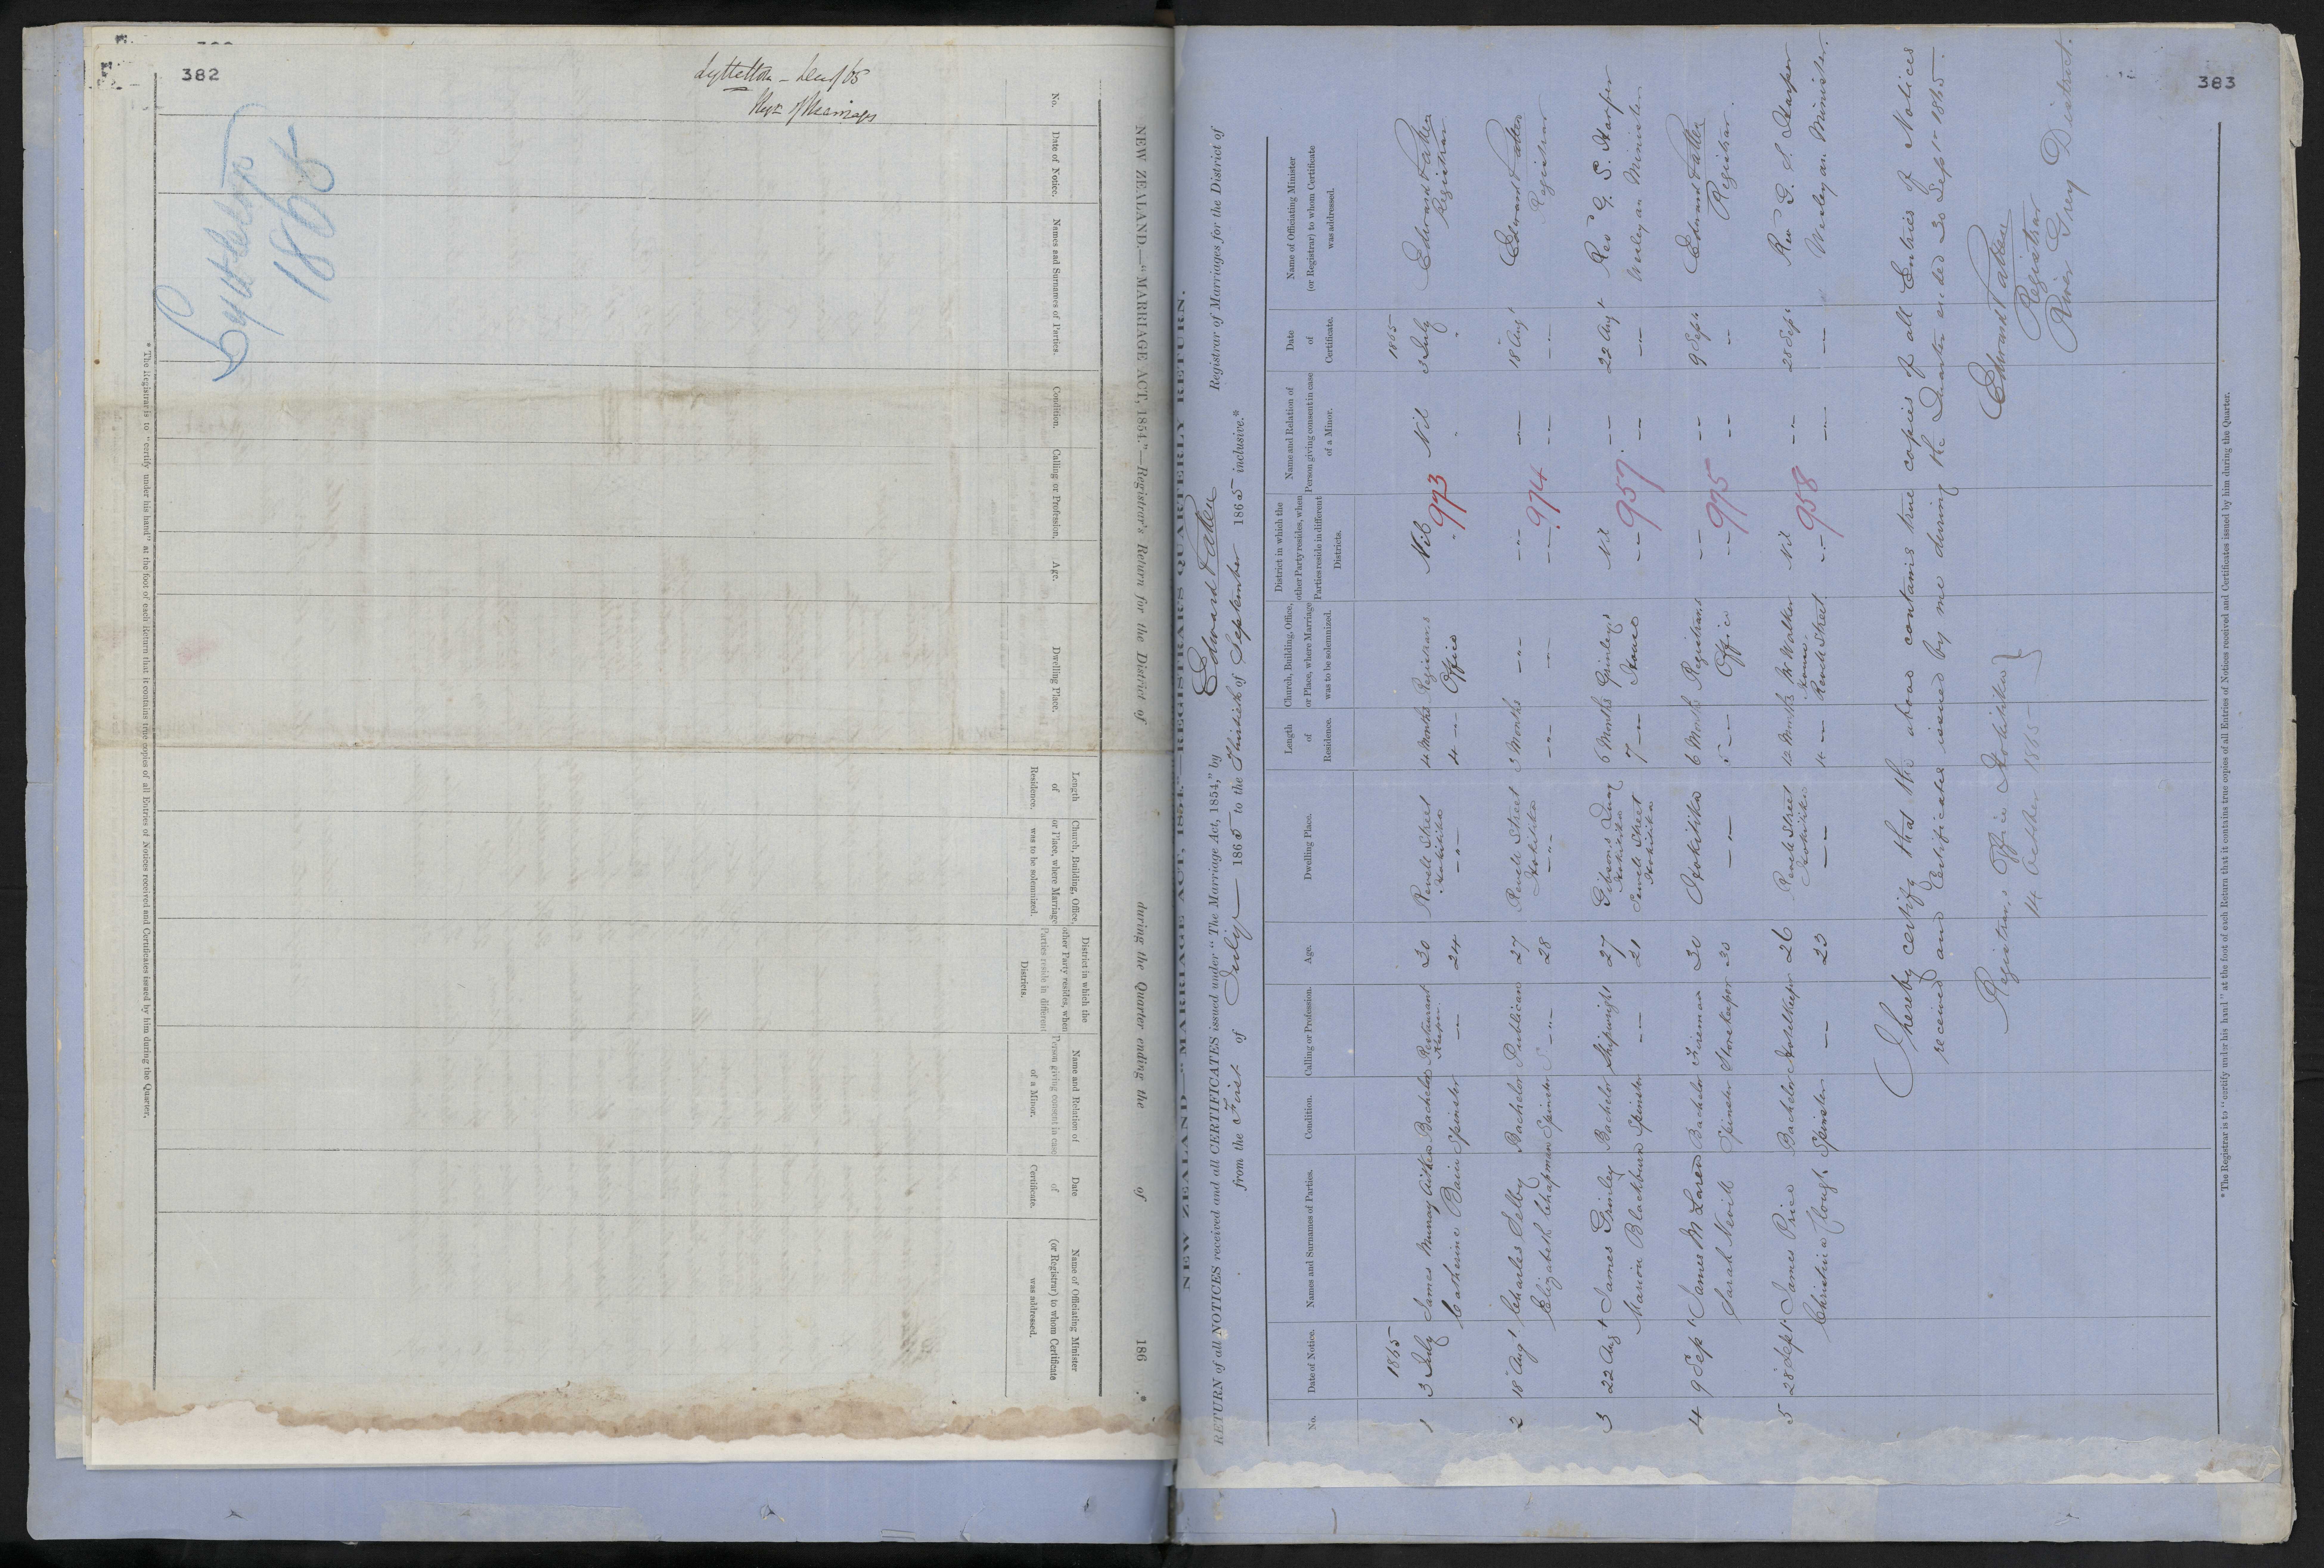 382
Lyttelton
1865
Lyttelton –
of Marriages
NEW ZEALAND.—"MARRIAGE ACT, 1854."—Registrar's Return for the District of during the Quarter ending the of 186 .*
No.
Date of Notice.
Names and Surnames of Parties.
Condition.
Calling or Profession.
Age.
Dwelling Place.
Length of Residence.
Church, Building, Office, or Place, where Marriage was to be solemnized.
District in which the other Party resides, when Parties reside in different Districts.
Name and Relation of Person giving consent in case of a Minor.
Date of Certificate.
Name of Officiating Minister (or Registrar) to whom Certificate was addressed.
* The Registrar is to "certify under his hand" at the foot of each Return that it contains true copies of all Entries of Notices received and Certificates issued by him during the Quarter.
383
NEW ZEALAND—"MARRIAGE ACT, 1854."—REGISTRAR'S QUARTERLY RETURN.
RETURN of all NOTICES received and all CERTIFICATES issued under "The Marriage Act, 1854," by Edward Patten Registrar of Marriages for the District of
from the First of July 1865 to the Thirtieth of September 1865 inclusive.*
No. Date of Notice. Names and Surnames of Parties. Condition. Calling or Profession. Age. Dwelling Place. Length of Residence. Church, Building, Office, or Place, where Marriage was to be solemnized. District in which the other Party resides, when Parties reside in different Districts. Name and Relation of Person giving consent in case of a Minor. Date of Certificate. Name of Officiating Minister (or Registrar) to whom Certificate was addressed.
1865 1865
1 3 July James Murray Aitken Bachelor Restaurant Keeper 30 Revell Street Hokitika 4 Months Registrars Office Nil Nil 3 July Edward Patten Registrar
Catherine Bain Spinster — 24 — " — 4 — " 973 "
2 18 Augt Charles Selby Bachelor Publican 27 Revell Street Hokitika 3 Months — " — — " — — " — 18 Augt Edward Patten Registrar
Elizabeth Chapman Spinster — " — 28 — " — — " — — " — 974 — " — — " —
3 22 Augt James Grinley Bachelor Shipwright 27 Gibsons Quay Hokitika 6 Months Grinleys House Nil — " — 22 Augt Rev G. S. Harper
Marion Blackburn Spinster — " — 21 Sewell Street Hokitika 7 — " — 957 — " — — " — Wesleyan Minister
4 9 Sept James McLaren Bachelor Fireman 30 Hokitika 6 Months Registrars Office — " — — " — 9 Sept Edward Patten
Sarah Nevill Spinster Storekeeper 30 — " — 5 — " — 975 — " — — " — Registrar.
5 28 Sept James Price Bachelor Hotelkeeper 26 Revell Street Hokitika 12 Months Mr Walker House Nil — " — 28 Sept Rev G. S. Harper
Christina Clough Spinster — " — 23 — " — 4 — " Revell Street 958 — " — — " — Wesleyan Minister.
I hereby certify that the above contains true copies of all Entries of Notices
received and Certificates issued by me during the Quarter ended 30 Sept 1865—
Registrars Office Hokitika }
14 October 1865
Edward Patten
Registrar
River Grey District.
* The Registrar is to "certify under his hand" at the foot of each Return that it contains true copies of all Entries of Notices received and Certificates issued by him during the Quarter.